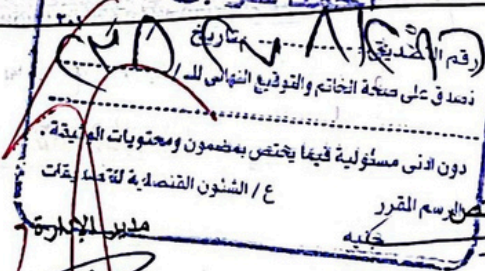 رقم التصديق ............ بتاريخ
نصدق على صحة الخاتم والتوقيع النهائى للـ /
دون ادنى مسئولية فيما يختص بمضمون ومحتويات الوثيقة .
ع / الشئون القنصلية للتصديقات
الرسم المقرر
جنيه
مدير الإدارة